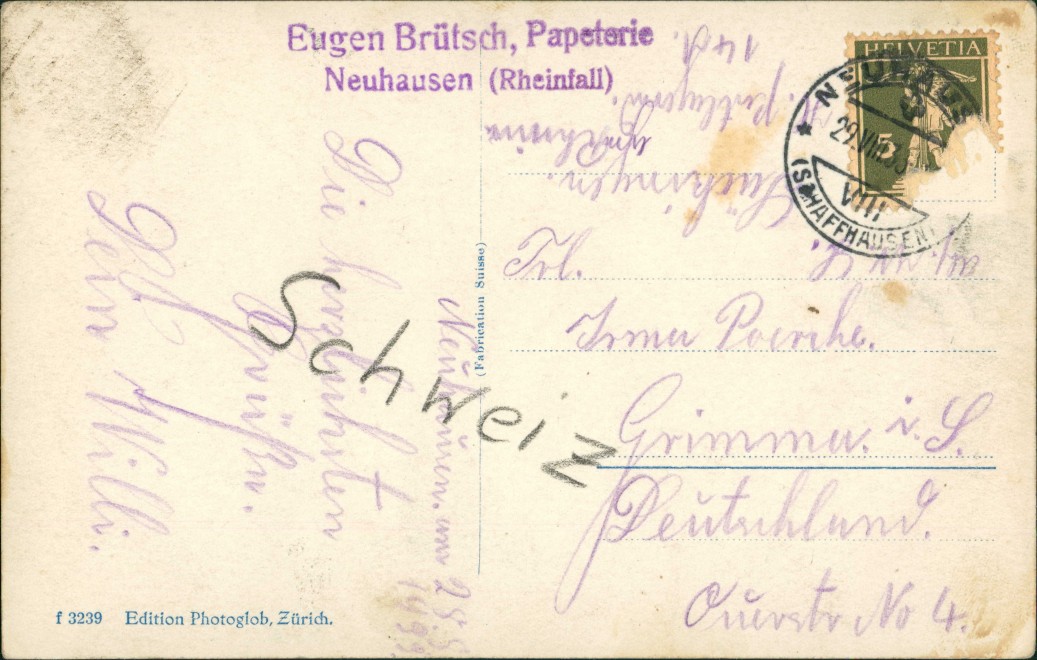 Eugen Brütsch, Papeterie
Neuhausen (Rheinfall)
HELVETIA
5
NEUHAUS
29.VIII.33
VIII
(SCHAFFHAUSEN)
Die herzlichsten
Grüße.
Dein Willi.
Neuhausen, am 29.8.
1933.
Schweiz
(Fabrication Suisse)
Frl.
Irma Poersche.
Grimma i. S.
Deutschland.
Querstr No 4.
f 3239 Edition Photoglob, Zürich.